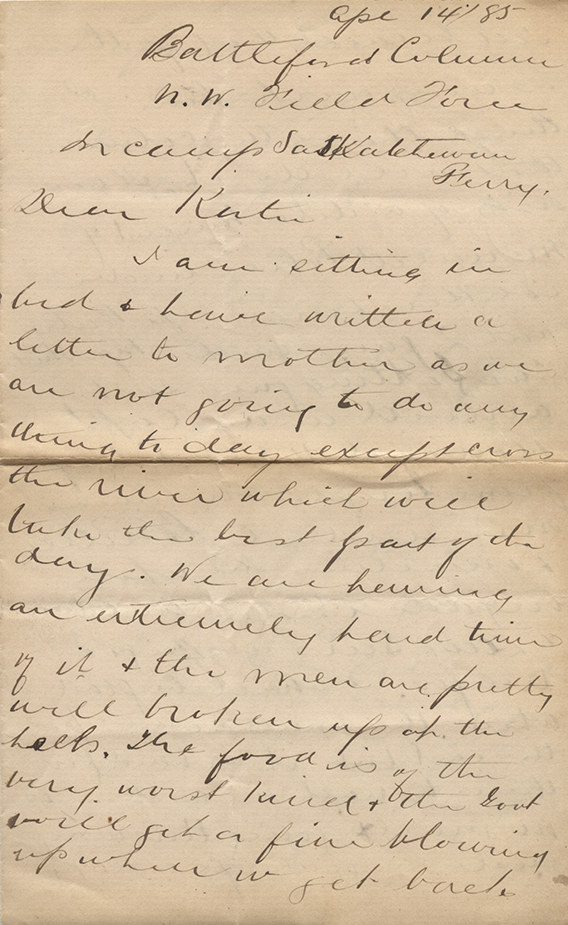 Apl 14/85
Battleford Column
N. W. Field Force
In camp Saskatchewan
Ferry.
Dear Katie
I am sitting in
bed & have written a
letter to mother as we
are not going to do any
thing to day except cross
the river which will
take the best part of the
day. We are having
an extremely hard time
of it & the men are pretty
well broken up at the
heels. The food is of the
very worst kind & the Govt
will get a fine blowing
up when we get back